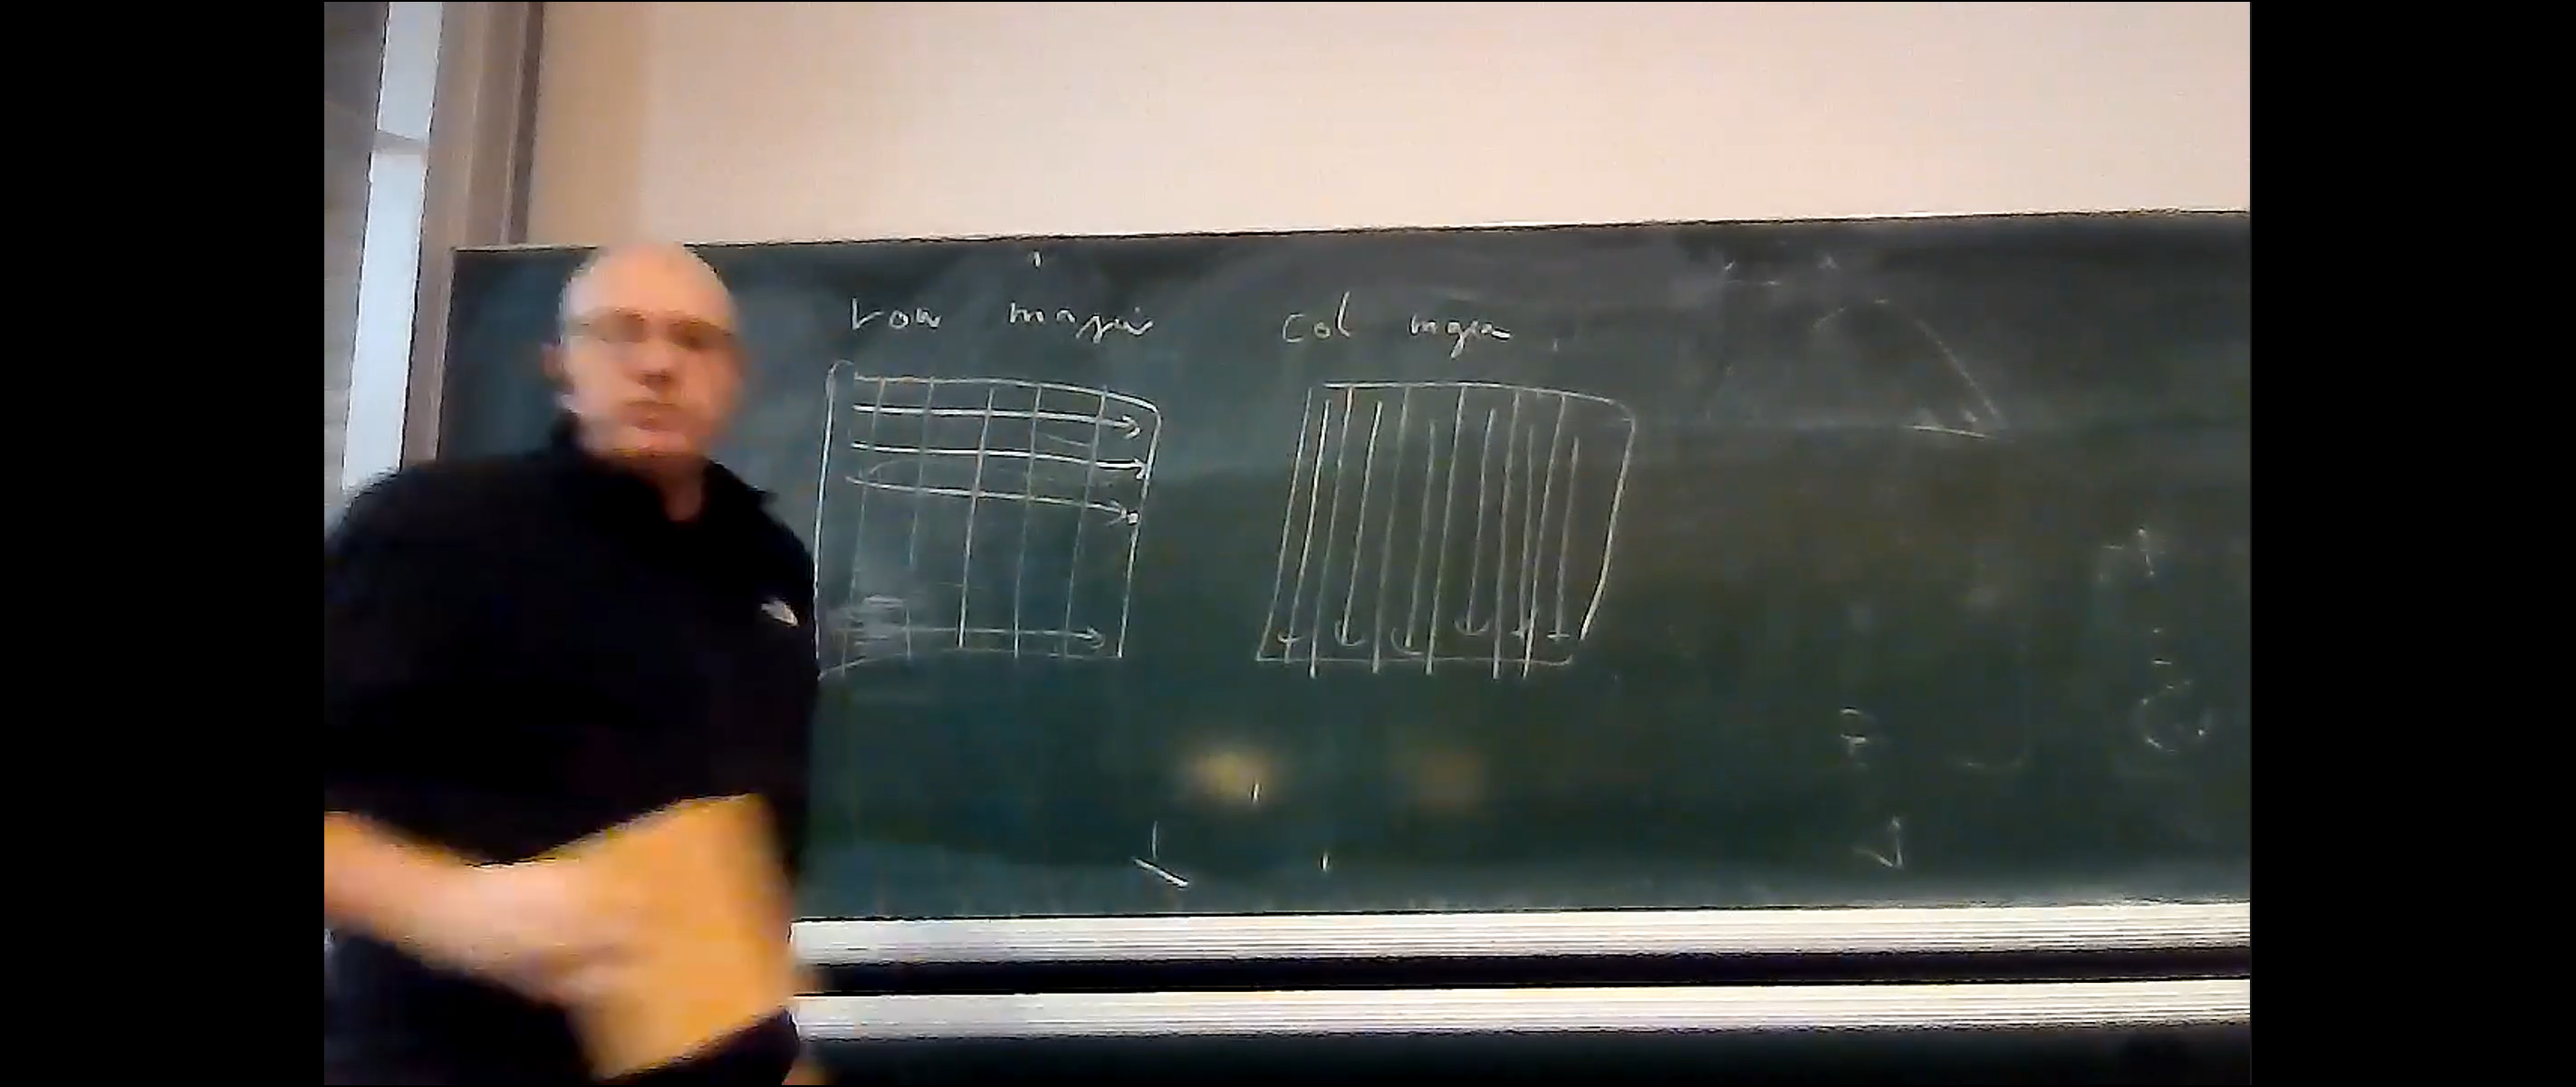 row major
col major